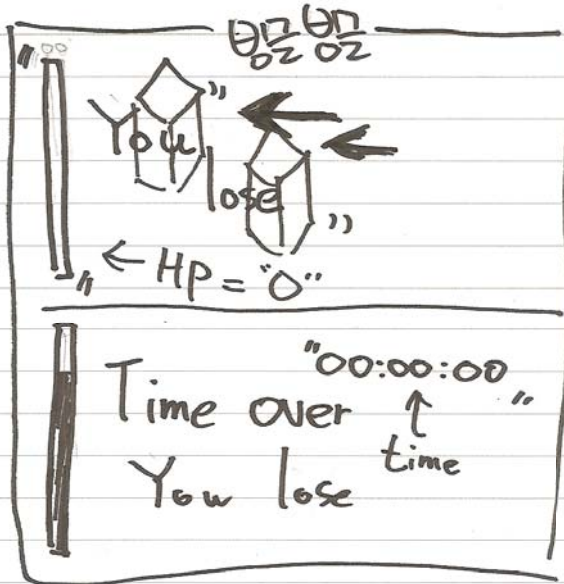 You"
lose"
← HP = "0"
"00:00:00"
Time over
time
You lose